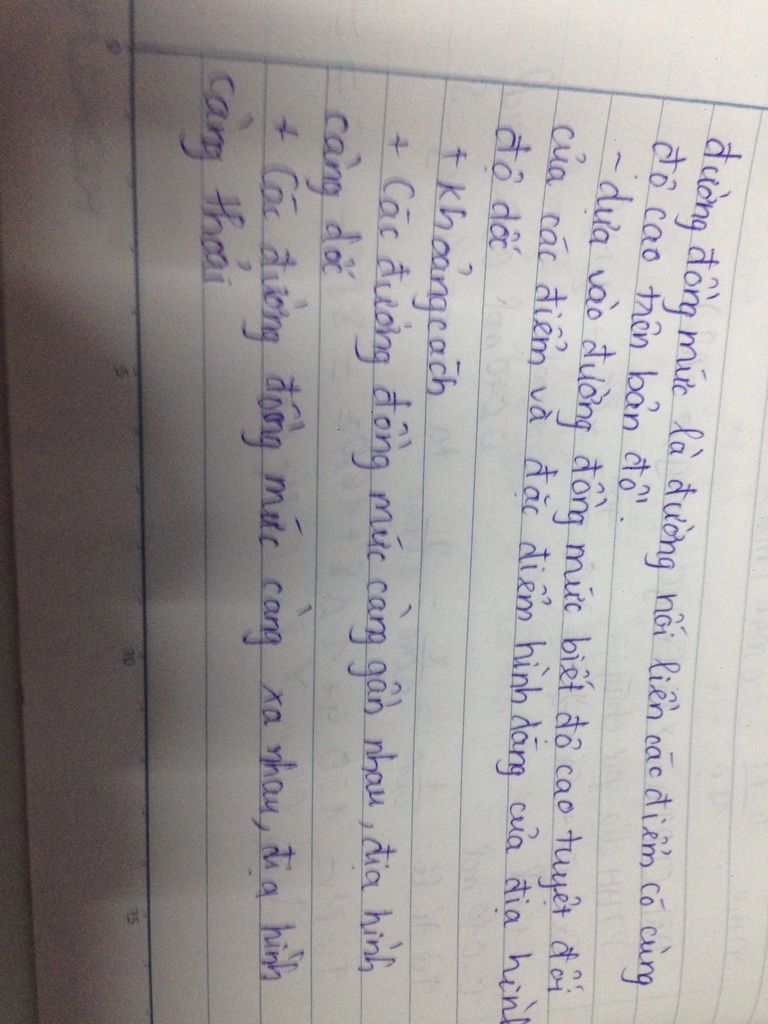 đường đồng mức là đường nối liền các điểm có cùng
độ cao trên bản đồ.
- dựa vào đường đồng mức biết độ cao tuyệt đối
của các điểm và đặc điểm hình dáng của địa hình
độ dốc
+ khoảng cách
+ Các đường đồng mức càng gần nhau, địa hình
càng dốc
+ Các đường đồng mức càng xa nhau, địa hình
càng thoải
0 5 10 15